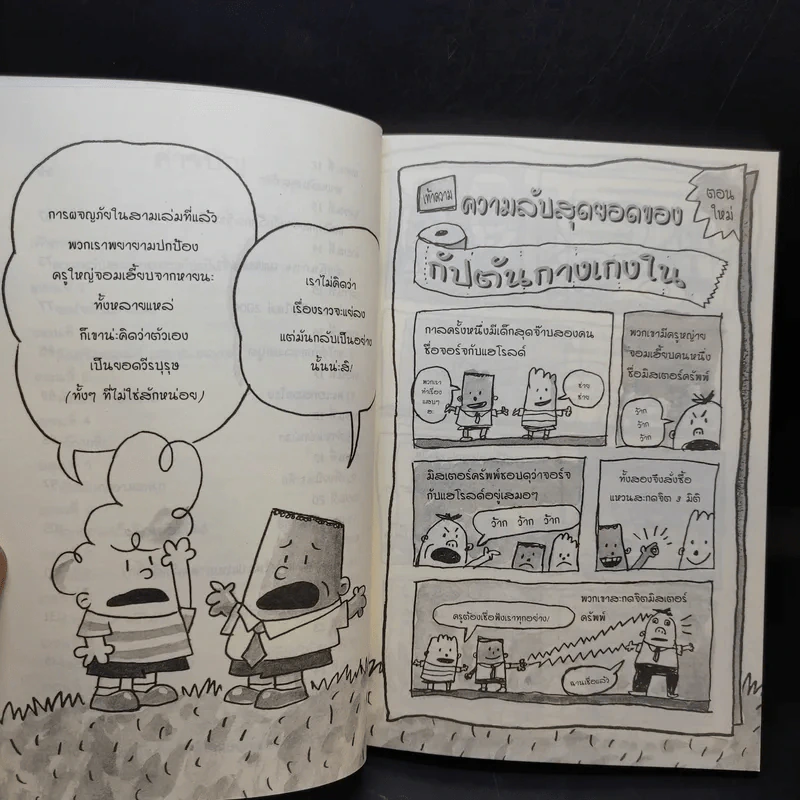 การผจญภัยในสามเล่มที่แล้ว
พวกเราพยายามปกป้อง
ครูใหญ่จอมเฮี้ยบจากหายนะ
ทั้งหลายแหล่
ก็เขาน่ะคิดว่าตัวเอง
เป็นยอดวีรบุรุษ
(ทั้งๆ ที่ไม่ใช่สักหน่อย)
เราไม่คิดว่า
เรื่องราวจะแย่ลง
แต่มันกลับเป็นอย่าง
นั้นน่ะสิ!
เท้าความ
ความลับสุดยอดของ
กัปตันกางเกงใน
ตอน
ใหม่
กาลครั้งหนึ่งมีเด็กสุดจ๊าบสองคน
ชื่อจอร์จกับแฮโรลด์
พวกเรา
ใช่
ใช่
พวกเขามีครูใหญ่
จอมเฮี้ยบคนหนึ่ง
ชื่อมิสเตอร์ครัพพ์
ว้าก
ว้าก
ว้าก
มิสเตอร์ครัพพ์ชอบดุว่าจอร์จ
กับแฮโรลด์อยู่เสมอๆ
ว้าก ว้าก ว้าก
ทั้งสองจึงสั่งซื้อ
แหวนสะกดจิต 3 มิติ
พวกเขาสะกดจิตมิสเตอร์
ครัพพ์
ครูต้องเชื่อฟังเราทุกอย่าง!